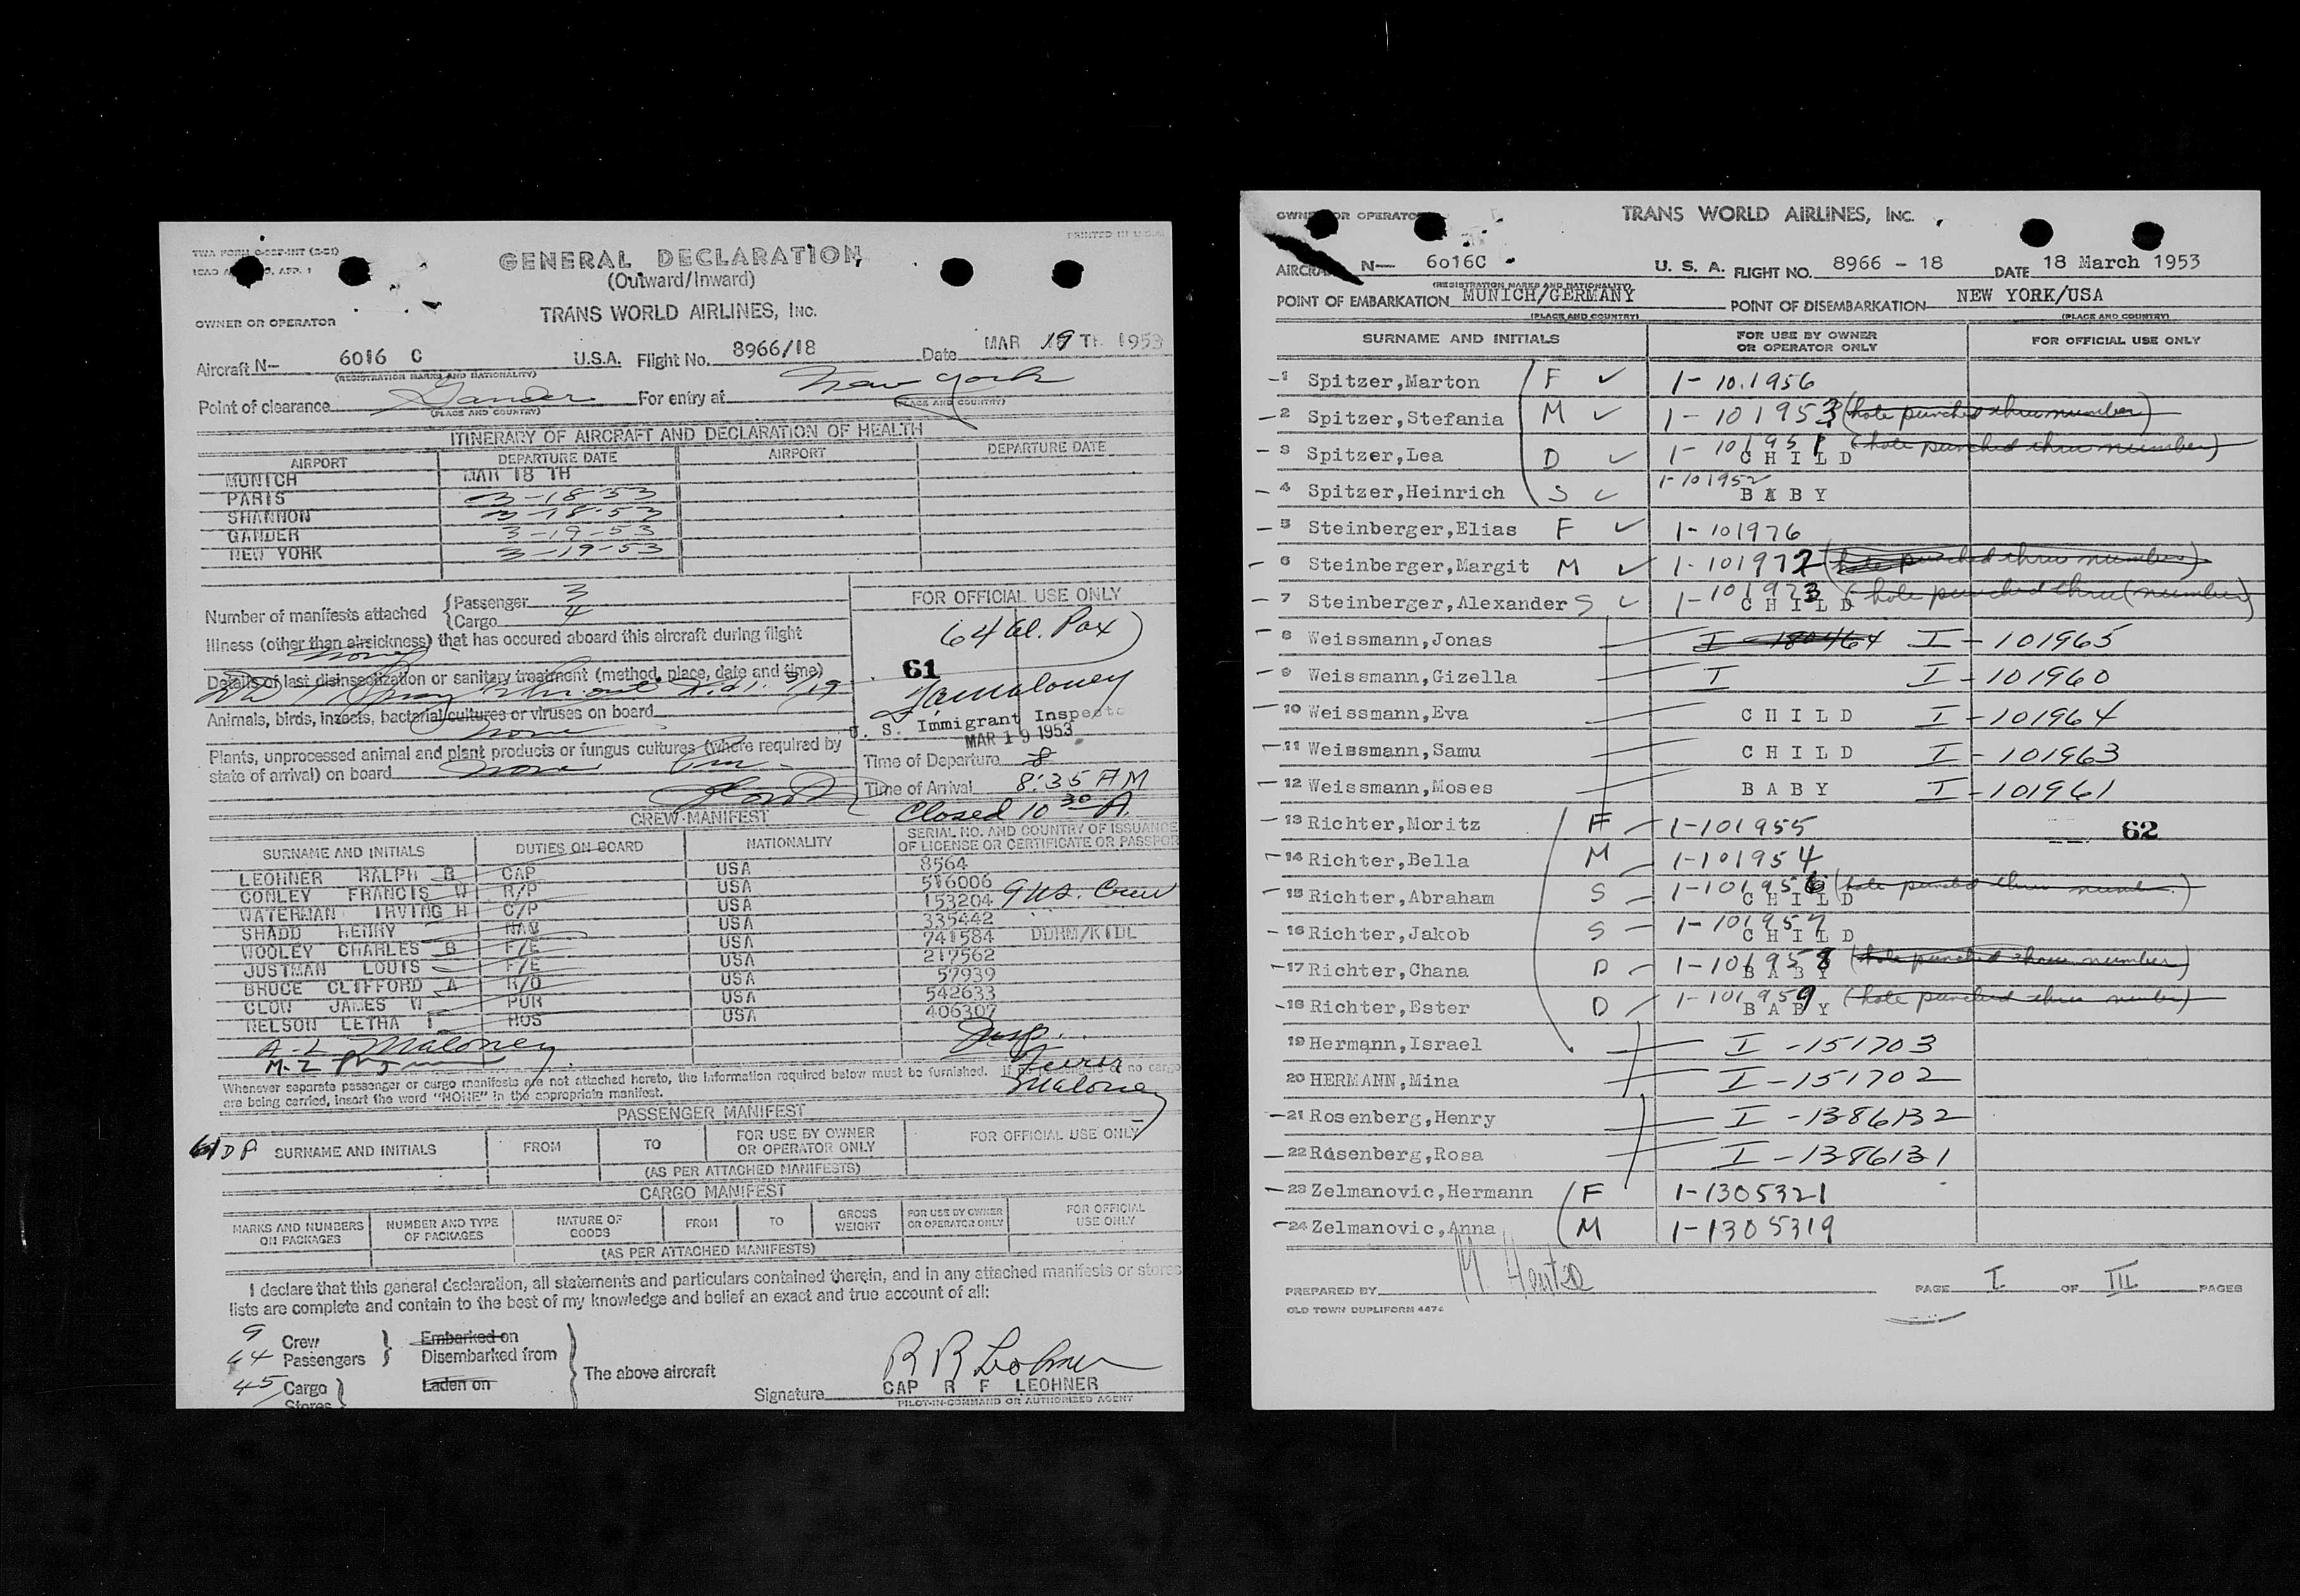 TWA FORM O-257-INT (2-51)
PRINTED IN U.S.A.
GENERAL DECLARATION
(Outward/Inward)
TRANS WORLD AIRLINES, INC.
OWNER OR OPERATOR
Aircraft N— 6016 C U.S.A. Flight No. 8966/18 Date MAR 19 TH 1953
(REGISTRATION MARKS AND NATIONALITY)
Point of clearance Gander For entry at New York
(PLACE AND COUNTRY) (PLACE AND COUNTRY)
ITINERARY OF AIRCRAFT AND DECLARATION OF HEALTH
AIRPORT DEPARTURE DATE AIRPORT DEPARTURE DATE
MUNICH MAR 18 TH
PARIS 3-18-53
SHANNON 3-18-53
GANDER 3-19-53
NEW YORK 3-19-53
Number of manifests attached { Passenger 3
{ Cargo 4
Illness (other than airsickness) that has occured aboard this aircraft during flight
none
Details of last disinsectization or sanitary treatment (method, place, date and time)
Animals, birds, insects, bacterial cultures or viruses on board
none
Plants, unprocessed animal and plant products or fungus cultures (where required by
state of arrival) on board none
FOR OFFICIAL USE ONLY
64 al. Pax
61
U. S. Immigrant Inspector
MAR 19 1953
Time of Departure 8
Time of Arrival 8:35 AM
Closed 10 30 A.
CREW MANIFEST
SURNAME AND INITIALS DUTIES ON BOARD NATIONALITY SERIAL NO. AND COUNTRY OF ISSUANCE OF LICENSE OR CERTIFICATE OR PASSPOR
LEOHNER RALPH R CAP USA 8564
CONLEY FRANCIS W R/P USA 516006
WATERMAN IRVING H C/P USA 153204 9 US. Crew
SHADD HENRY NAV USA 335442
WOOLEY CHARLES B F/E USA 741584 DDRM/KTDL
JUSTMAN LOUIS F/E USA 217562
BRUCE CLIFFORD A R/O USA 57939
CLOW JAMES W PUR USA 542633
NELSON LETHA I HOS USA 406307
A-L Maloney
Insp.
Maloney
Whenever separate passenger or cargo manifests are not attached hereto, the information required below must be furnished. If no passengers or no cargo
are being carried, insert the word "NONE" in the appropriate manifest.
PASSENGER MANIFEST
61 DP SURNAME AND INITIALS FROM TO FOR USE BY OWNER OR OPERATOR ONLY FOR OFFICIAL USE ONLY
(AS PER ATTACHED MANIFESTS)
CARGO MANIFEST
MARKS AND NUMBERS ON PACKAGES NUMBER AND TYPE OF PACKAGES NATURE OF GOODS FROM TO GROSS WEIGHT FOR USE BY OWNER OR OPERATOR ONLY FOR OFFICIAL USE ONLY
(AS PER ATTACHED MANIFESTS)
I declare that this general declaration, all statements and particulars contained therein, and in any attached manifests or stores
lists are complete and contain to the best of my knowledge and belief an exact and true account of all:
9 Crew } Embarked on
64 Passengers } Disembarked from
The above aircraft
45 Cargo } Laden on
Stores
Signature R R Leohner
CAP R F LEOHNER
PILOT-IN-COMMAND OR AUTHORIZED AGENT
OWNER OR OPERATOR TRANS WORLD AIRLINES, INC.
AIRCRAFT N— 6016C U. S. A. FLIGHT NO. 8966 - 18 DATE 18 March 1953
(REGISTRATION MARKS AND NATIONALITY)
POINT OF EMBARKATION MUNICH/GERMANY POINT OF DISEMBARKATION NEW YORK/USA
(PLACE AND COUNTRY) (PLACE AND COUNTRY)
SURNAME AND INITIALS FOR USE BY OWNER OR OPERATOR ONLY FOR OFFICIAL USE ONLY
1 Spitzer,Marton F 1-10.1956
2 Spitzer,Stefania M 1-101953 (hole punched thru number)
3 Spitzer,Lea D 1-101951 CHILD (hole punched thru number)
4 Spitzer,Heinrich S 1-101952 BABY
5 Steinberger,Elias F 1-101976
6 Steinberger,Margit M 1-101972 (hole punched thru number)
7 Steinberger,Alexander S 1-101973 CHILD (hole punched thru (number)
8 Weissmann,Jonas I-180464 I-101965
9 Weissmann,Gizella I I-101960
10 Weissmann,Eva CHILD I-101964
11 Weissmann,Samu CHILD I-101963
12 Weissmann,Moses BABY I-101961
13 Richter,Moritz F 1-101955
62
14 Richter,Bella M 1-101954
15 Richter,Abraham S 1-101956 CHILD (hole punched thru number)
16 Richter,Jakob S 1-101957 CHILD
17 Richter,Chana D 1-101958 BABY (hole punched thru number)
18 Richter,Ester D 1-101959 BABY (hole punched thru number)
19 Hermann,Israel I-151703
20 HERMANN,Mina I-151702
21 Rosenberg,Henry I-1386132
22 Rosenberg,Rosa I-1386131
23 Zelmanovic,Hermann F 1-1305321
24 Zelmanovic,Anna M 1-1305319
PREPARED BY PAGE I OF III PAGES
OLD TOWN DUPLIFORM 4474